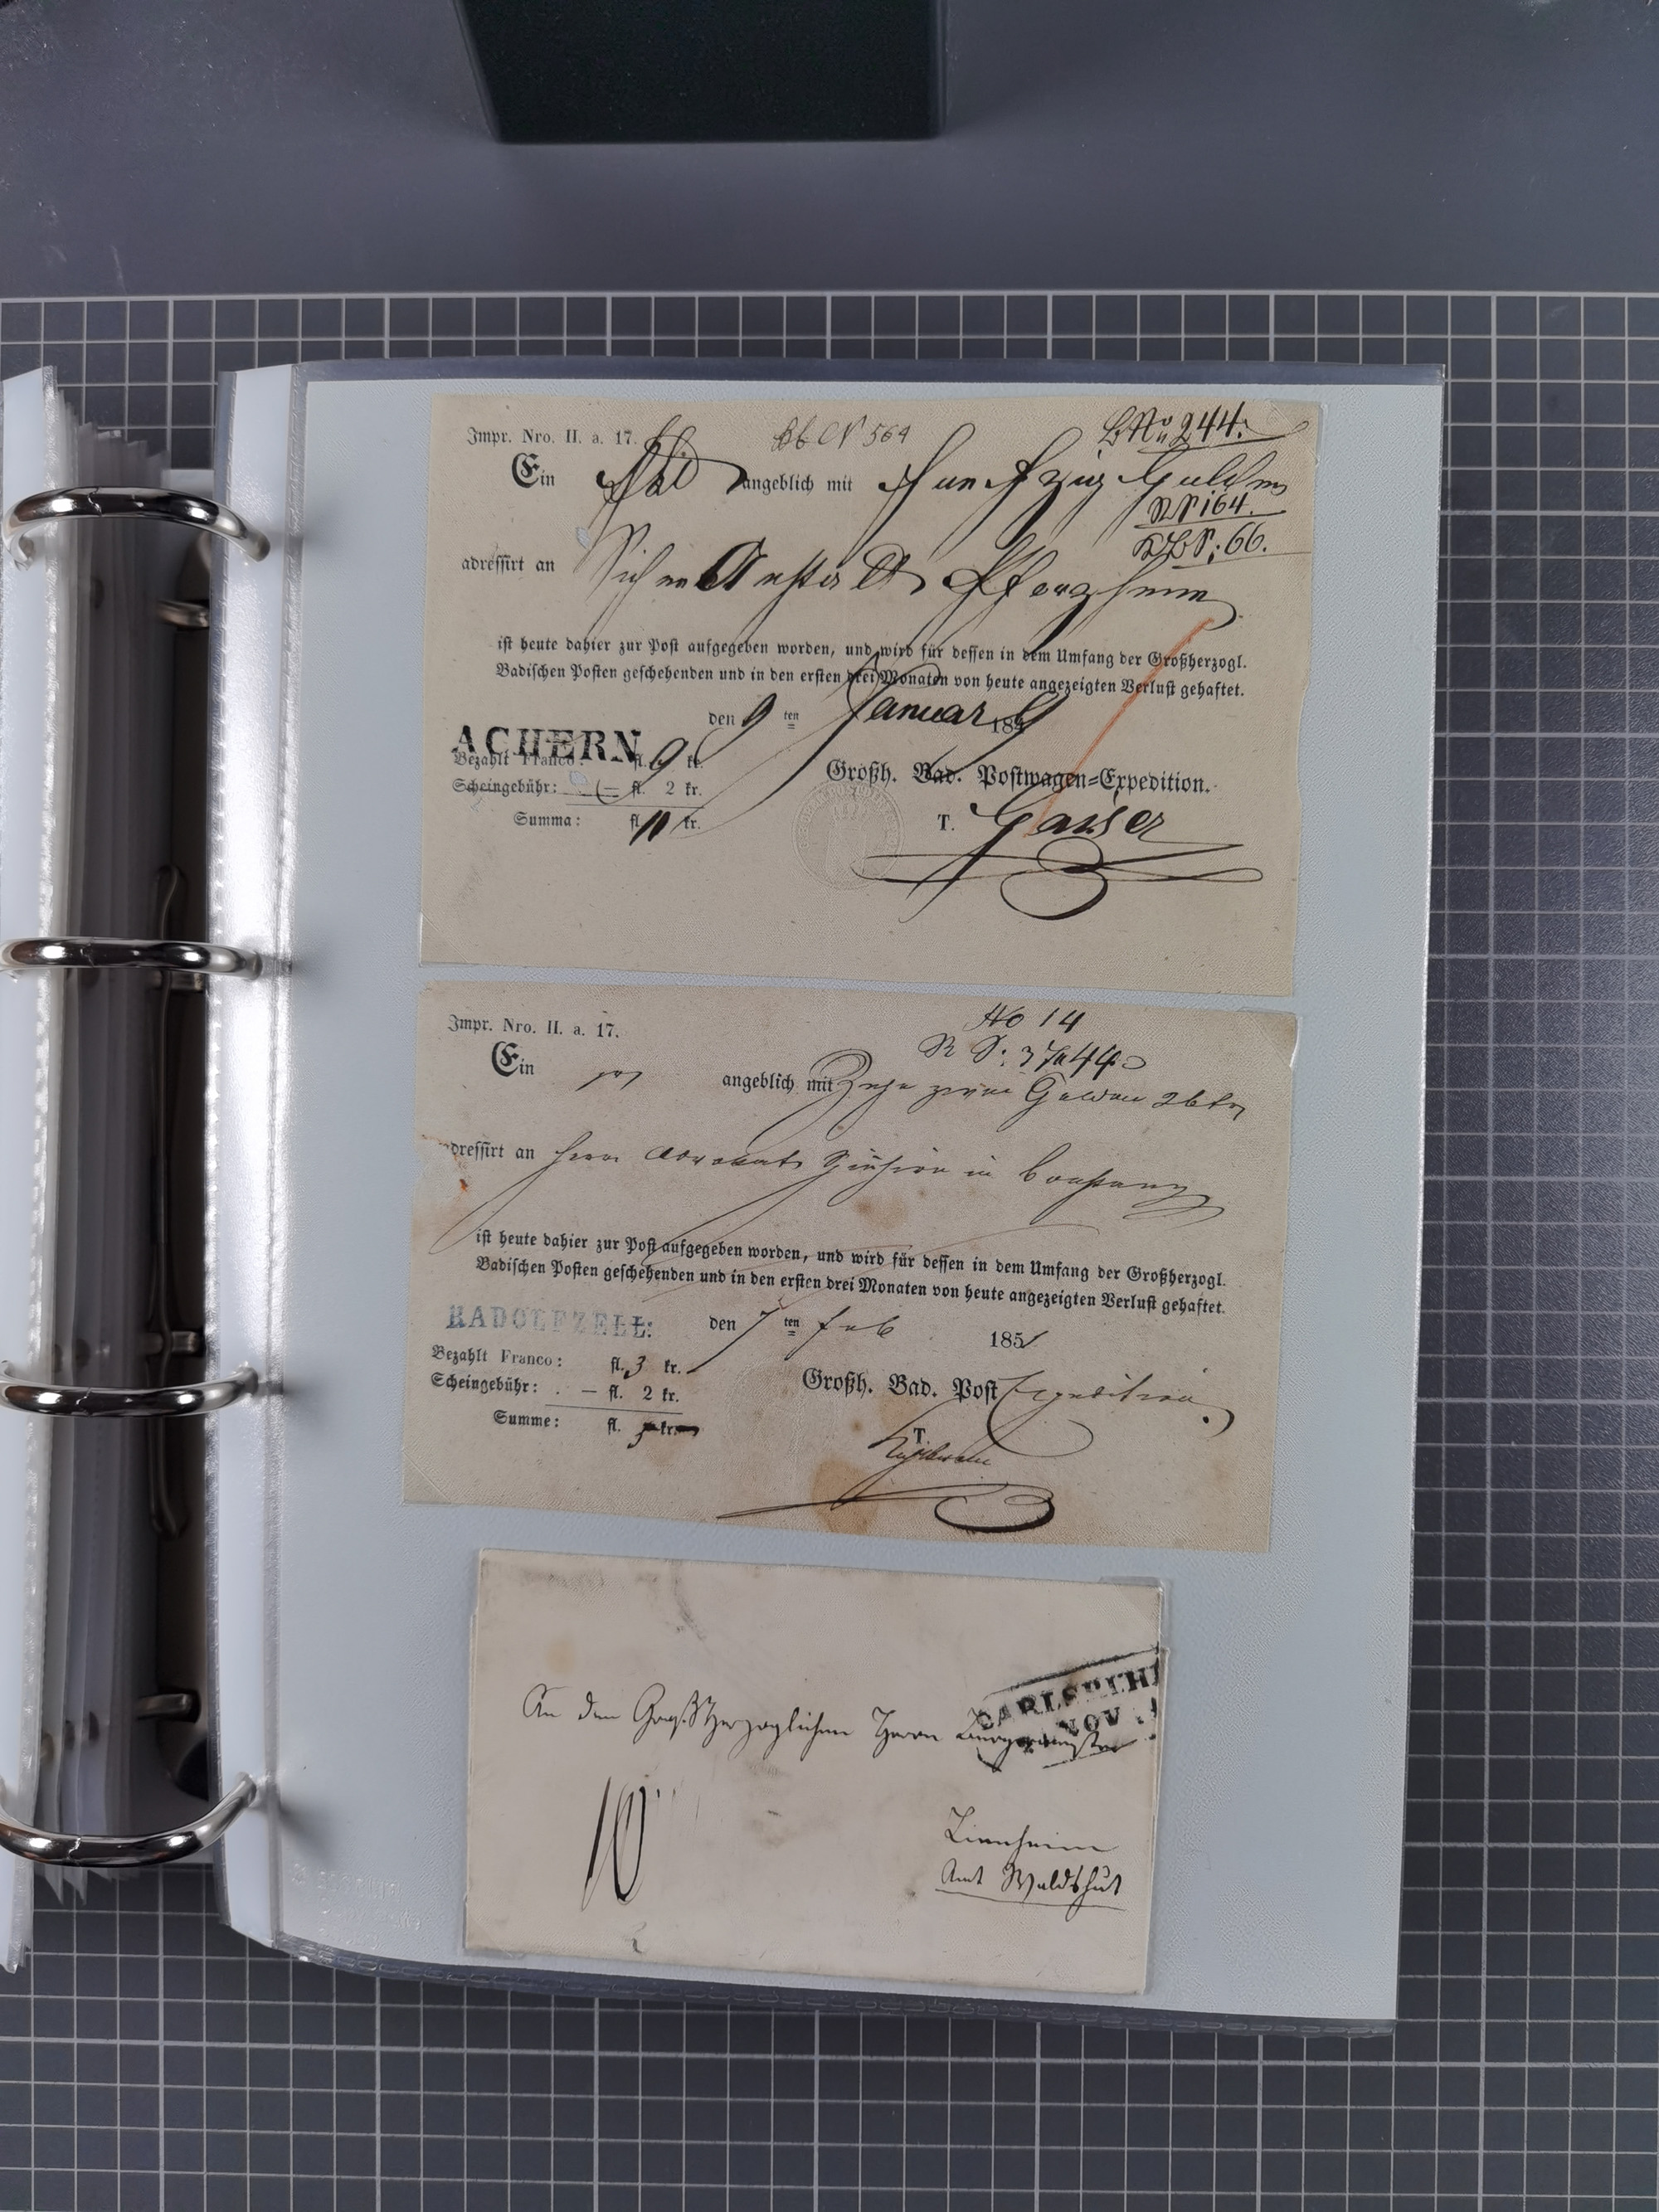 Impr. Nro. II. a. 17.
No 244.
Ein angeblich mit Fünfzig Gulden
164.
66.
adressirt an Pforzheim
ist heute dahier zur Post aufgegeben worden, und wird für dessen in dem Umfang der Großherzogl.
Badischen Posten geschehenden und in den ersten drei Monaten von heute angezeigten Verlust gehaftet.
den 9 ten Januar 184
ACHERN
Bezahlt Franco: fl. 9 kr.
Scheingebühr: — fl. 2 kr.
Summa: fl. 11 kr.
Großh. Bad. Postwagen=Expedition.
T. Gaiser
Impr. Nro. II. a. 17.
No 14
Ein angeblich mit Gulden
adressirt an Herrn Advokat in Constanz
ist heute dahier zur Post aufgegeben worden, und wird für dessen in dem Umfang der Großherzogl.
Badischen Posten geschehenden und in den ersten drei Monaten von heute angezeigten Verlust gehaftet.
RADOLFZELL: den 7 ten Feb 1851
Bezahlt Franco: fl. 3 kr.
Scheingebühr: — fl. 2 kr.
Summe: fl. 5 kr.
Großh. Bad. Post Expedition
T.
CARLSRUH
NOV
An den Großherzoglichen Herrn Bürgermeister
10
Lienheim
Amt Waldshut